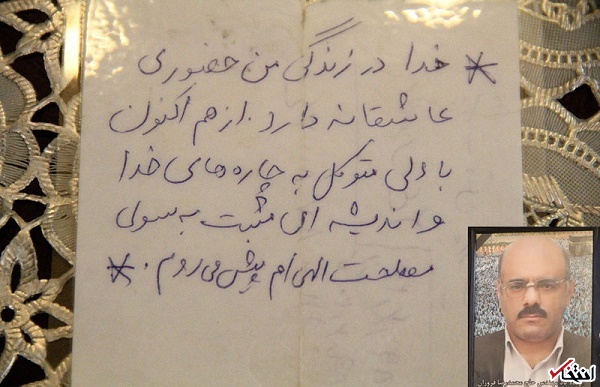 * خدا در زندگی من حضوری
عاشقانه دارد. از هم اکنون
با دلی متوکل به چاره های خدا
و اندیشه ای مثبت به سوی
مصلحت الهی ام پیش می روم. *
مهندس حاج محمدرضا فروزان
انتخاب